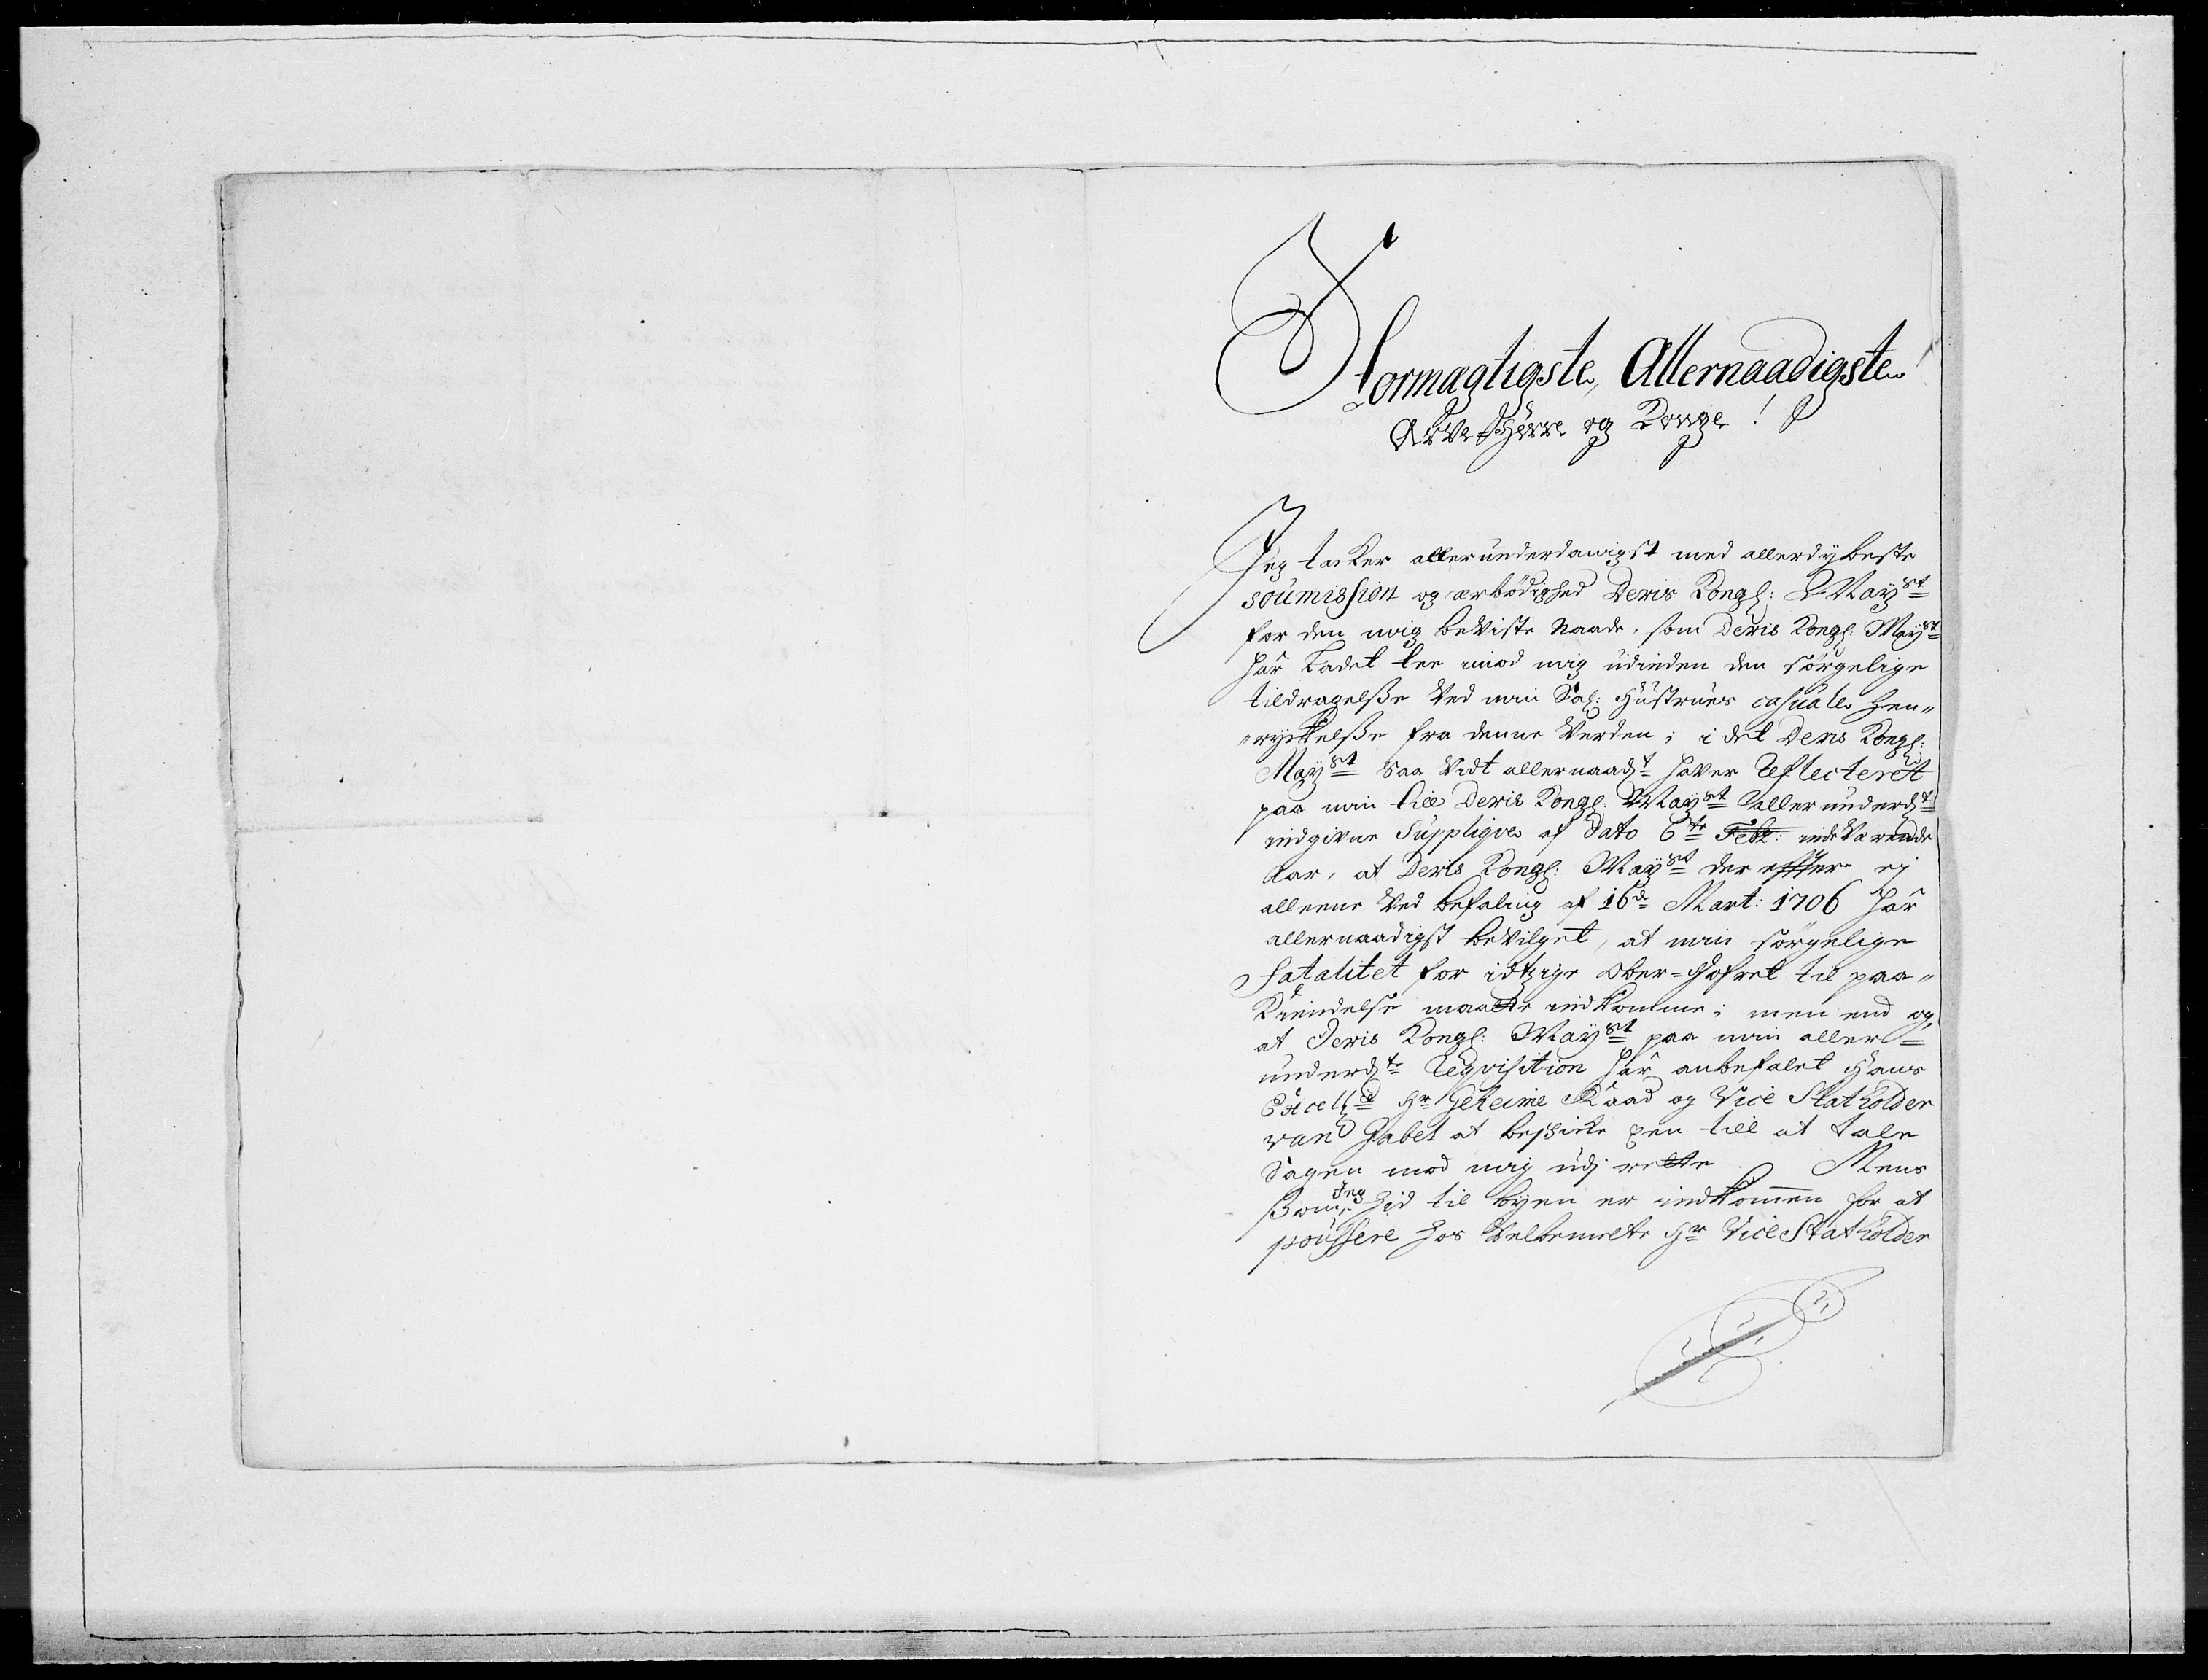 Stormagtigste, Allernaadigste
Arve-Herre og Konge!
Jeg tacker allerunderdanigst med allerdybeste
soumission og ærbödighed Deris Kongl: May:st
for den mig beviste Naade, som Deris Kongl: May:st
har ladet tee imod mig udinden den sörgelige
tildragelsse ved min Sal: Hustrues casuale hen-
ryckelsse fra denne Verden; i det Deris Kongl:
May:st saa vidt allernaad:t haver reflecteret
paa min till Deris Kongl: May:st allerunderd:t
indgivne Suppliqve af Dato 6te Febr: indeværende
Aar, at Deris Kongl: May:st der effter ej
alleene ved befaling af 16de Mart: 1706 har
allernaadigst bevilget, at min sörgelige
fatalitet for idtzige Ober-Hofret til paa-
kiendelse maatte indkomme; men end og,
at Deris Kongl: May:st paa min aller-
underd:te reqvisition har anbefalet Hans
Excell:ce Hr Geheime Raad og Vice Statholder
von Gabel at beschicke een till at tale
Sagen mod mig udj rette Mens
som Jeg hid til byen er indkommen for at
poussere hos velbemelte Hr Vice Statholder